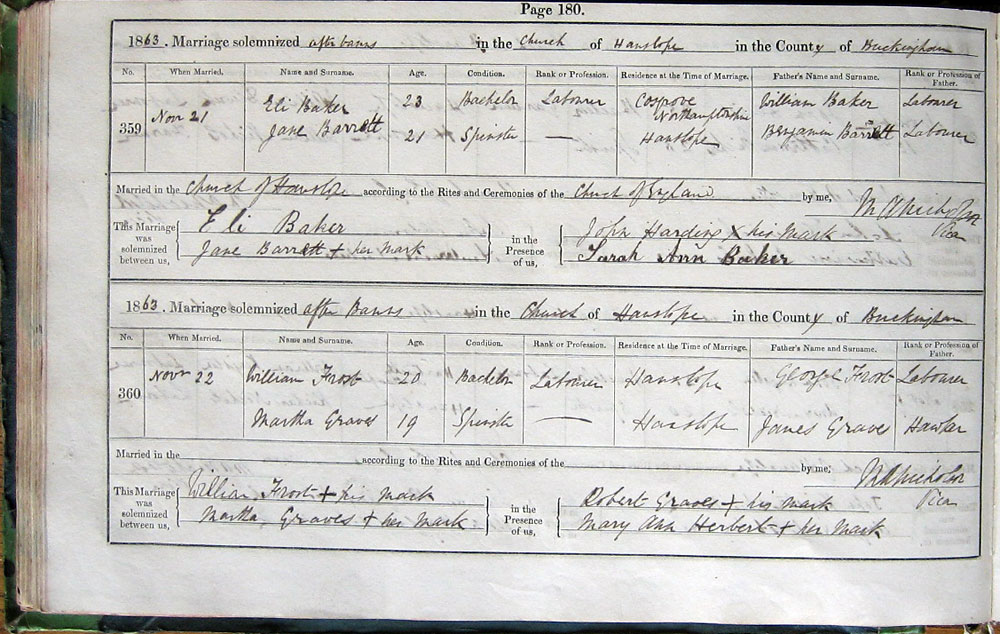 Page 180.
1863. Marriage solemnized after banns in the Church of Hanslope in the County of Buckingham
No. When Married. Name and Surname. Age. Condition. Rank or Profession. Residence at the Time of Marriage. Father's Name and Surname. Rank or Profession of Father.
359 Novr 21 Eli Baker 23 Bachelor Labourer Cosgrove Northamptonshire William Baker Labourer
Jane Barrett 21 Spinster — Hanslope Benjamin Barrett Labourer
Married in the Church of Hanslope according to the Rites and Ceremonies of the Church of England by me,
Vicar
This Marriage was solemnized between us, Eli Baker in the Presence of us, John Harding X his mark
Jane Barrett + her mark Sarah Ann Baker
1863. Marriage solemnized after Banns in the Church of Hanslope in the County of Buckingham
No. When Married. Name and Surname. Age. Condition. Rank or Profession. Residence at the Time of Marriage. Father's Name and Surname. Rank or Profession of Father.
360 Novr 22 William Frost 20 Bachelor Labourer Hanslope George Frost Labourer
Martha Graves 19 Spinster — Hanslope James Graves Hawker
Married in the according to the Rites and Ceremonies of the by me,
Vicar
This Marriage was solemnized between us, William Frost + his mark in the Presence of us, Robert Graves + his mark
Martha Graves + her mark Mary Ann Herbert + her mark